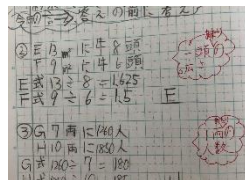 答えの前に考え
② E 13㎡に牛8頭
F 9㎡に牛6頭
E式 13÷8=1.625
F式 9÷6=1.5 E
1頭の
広さ
③ G 7両に1260人
H 10両に1850人
1両の
人数
G式 1260÷7=180